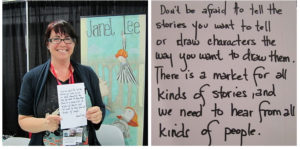 Janet Lee
Don't be afraid to tell the
stories you want to tell
or draw characters the
way you want to draw them.
There is a market for all
kinds of stories, and
we need to hear from all
kinds of people.